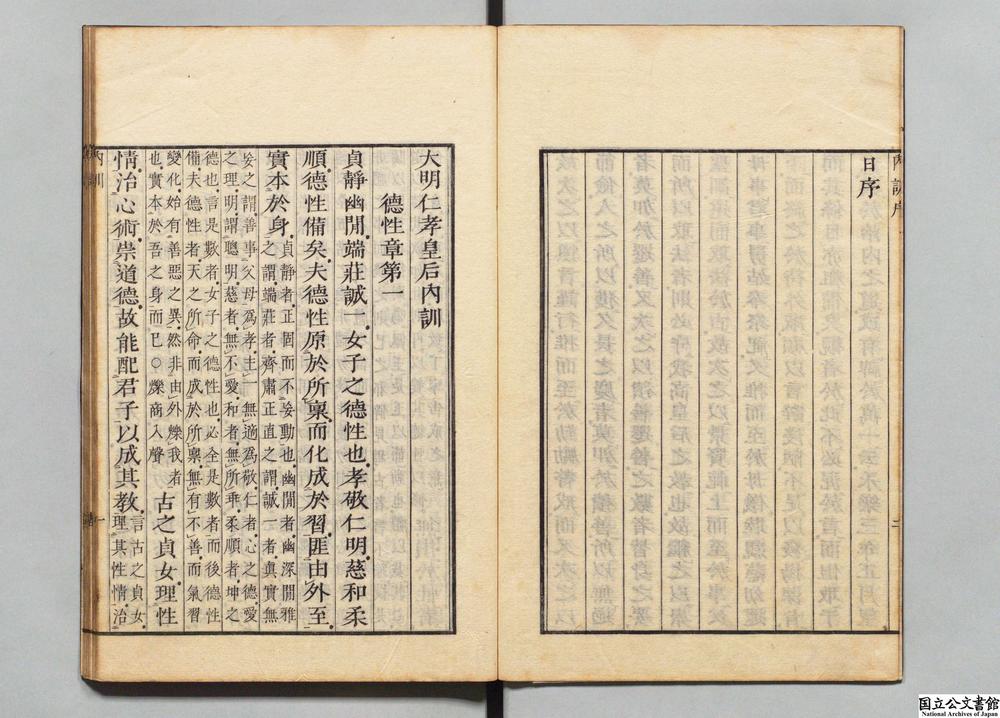 日序
大明仁孝皇后內訓
德性章第一
貞靜幽閒端莊誠一女子之德性也孝敬仁明慈和柔
順德性備矣夫德性原於所稟而化成於習匪由外至
實本於身
貞靜者正固而不妄動也幽閒者幽深閒雅
之謂端莊者齊肅正直之謂誠一者眞實無
妄之謂善事父母爲孝主一無適爲敬仁者心之德愛
之理明謂聰明慈者無不愛和者無所乖柔順者坤之
德也言是數者女子之德性也必全是數者而後德性
備夫德性者天之所命而成於所稟無有不善而氣習
變化始有善惡之異然非由外鑠我者
也實本於吾之身而已○爍商入聲
古之貞女理性
情治心術崇道德故能配君子以成其教
言古之貞女
理其性情治
內訓
一
內訓序
二
国立公文書館
National Archives of Japan